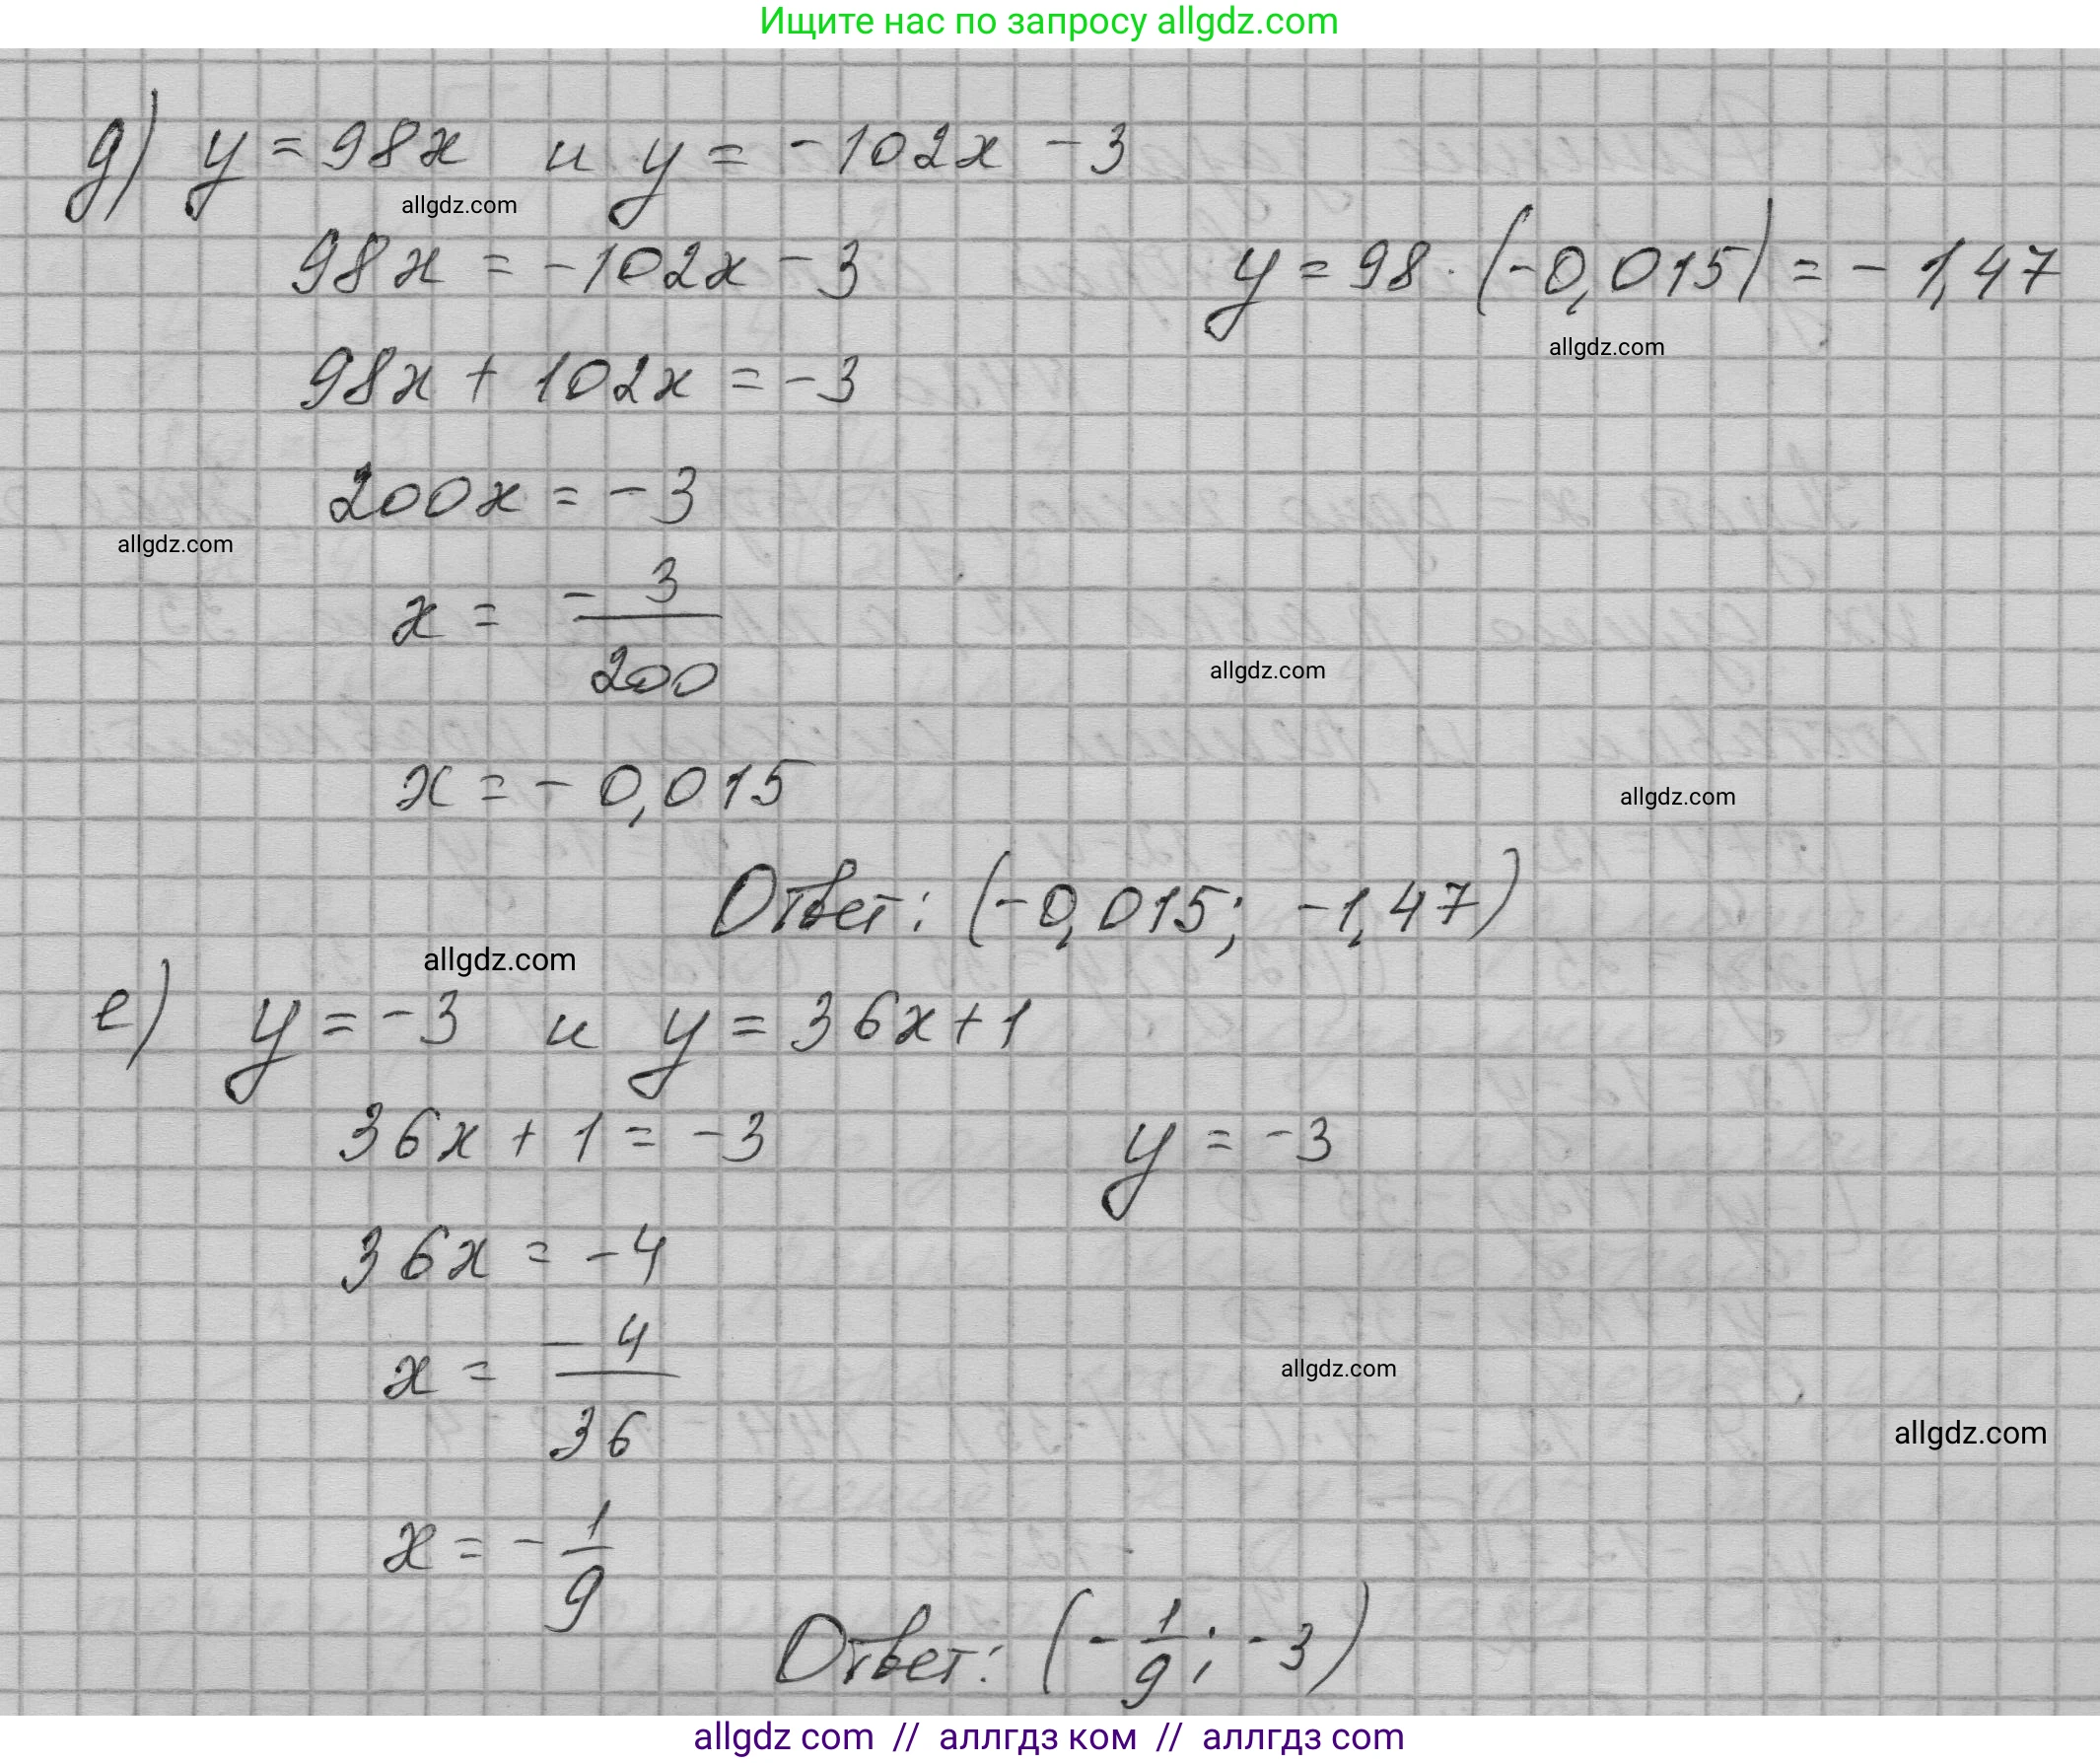 Ищите нас по запросу allgdz.com
д) y = 98x и y = -102x - 3
allgdz.com
98x = -102x - 3
y = 98 · (-0,015) = - 1,47
allgdz.com
98x + 102x = -3
200x = -3
allgdz.com
x = -3/200
allgdz.com
x = - 0,015
allgdz.com
Ответ: (-0,015; -1,47)
allgdz.com
е) y = -3 и y = 36x + 1
36x + 1 = -3
y = -3
36x = -4
x = -4/36
allgdz.com
allgdz.com
x = - 1/9
Ответ: (- 1/9; -3)
allgdz com // аллгдз ком // allgdz com